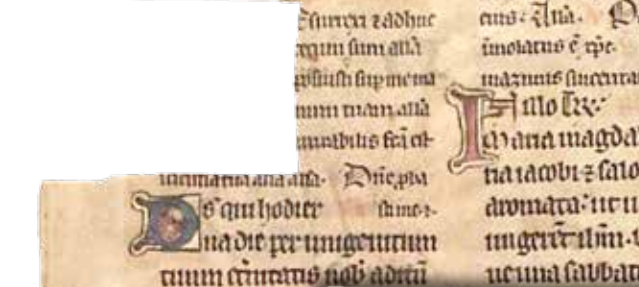 surrexi ⁊ adhuc
tecum sum all'a
posuisti sup me ma
num tuam all'a
mirabilis fc̄a est
tua all'a all'a. Dn̄e pba
Ds qui hodier sti me ⁊
na die per unigenitum
tuum et̄nitatis nob aditū
eius. All'a.
imolatus ē xp̄c.
In illo tp̄r.
Maria magda
na iacobi ⁊ salo
aromata. ut u
ungerēt ih̄m.
ue una sabbat